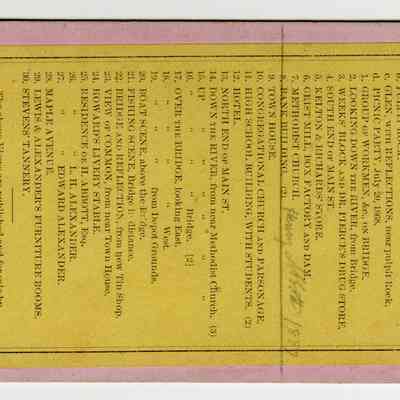 c. GLEN, with REFLECTIONS, near pulpit Rock.
d. PICNIC PARTY July 29, 1868.
1. GROUP of WORKMEN, &c, on BRIDGE.
2. LOOKING DOWN the RIVER, from Bridge.
3. WEEKS' BLOCK AND DR. PIERCE'S DRUG STORE.
4. SOUTH END of MAIN ST.
5. KELTON & RICHARDS' STORE.
6. GRIST MILL, BOX FACTORY AND DAM.
7. METHODIST CHURCH.
8. BANK BUILDING. (2)
9. TOWN HOUSE.
10. CONGREGATIONAL CHURCH AND PARSONAGE.
11. HIGH SCHOOL BUILDING, WITH STUDENTS. (2)
12. HOTEL.
13. NORTH END OF MAIN ST.
14. DOWN THE RIVER, from near Methodist Church. (3)
15. UP " " "
16. " " " " Bridge. [2]
17. OVER THE BRIDGE, looking East.
18. " " " " West.
19. " " " from Depot Grounds.
20. BOAT SCENE, above the Bridge.
21. FISHING SCENE, Bridge in distance.
22. BRIDGE AND REFLECTION, from now Tin Shop.
23. VIEW OF COMMON, from near Town House.
24. HOWARD'S LIVERY STABLE.
25. RESIDENCE OF WHITE, Esq.
26. " " L. H. ALEXANDER.
27. " " EDWARD ALEXANDER.
28. MAPLE AVENUE.
29. LEWIS & ALEXANDER'S FURNITURE ROOMS.
30. STEVENS' TANNERY.
1877